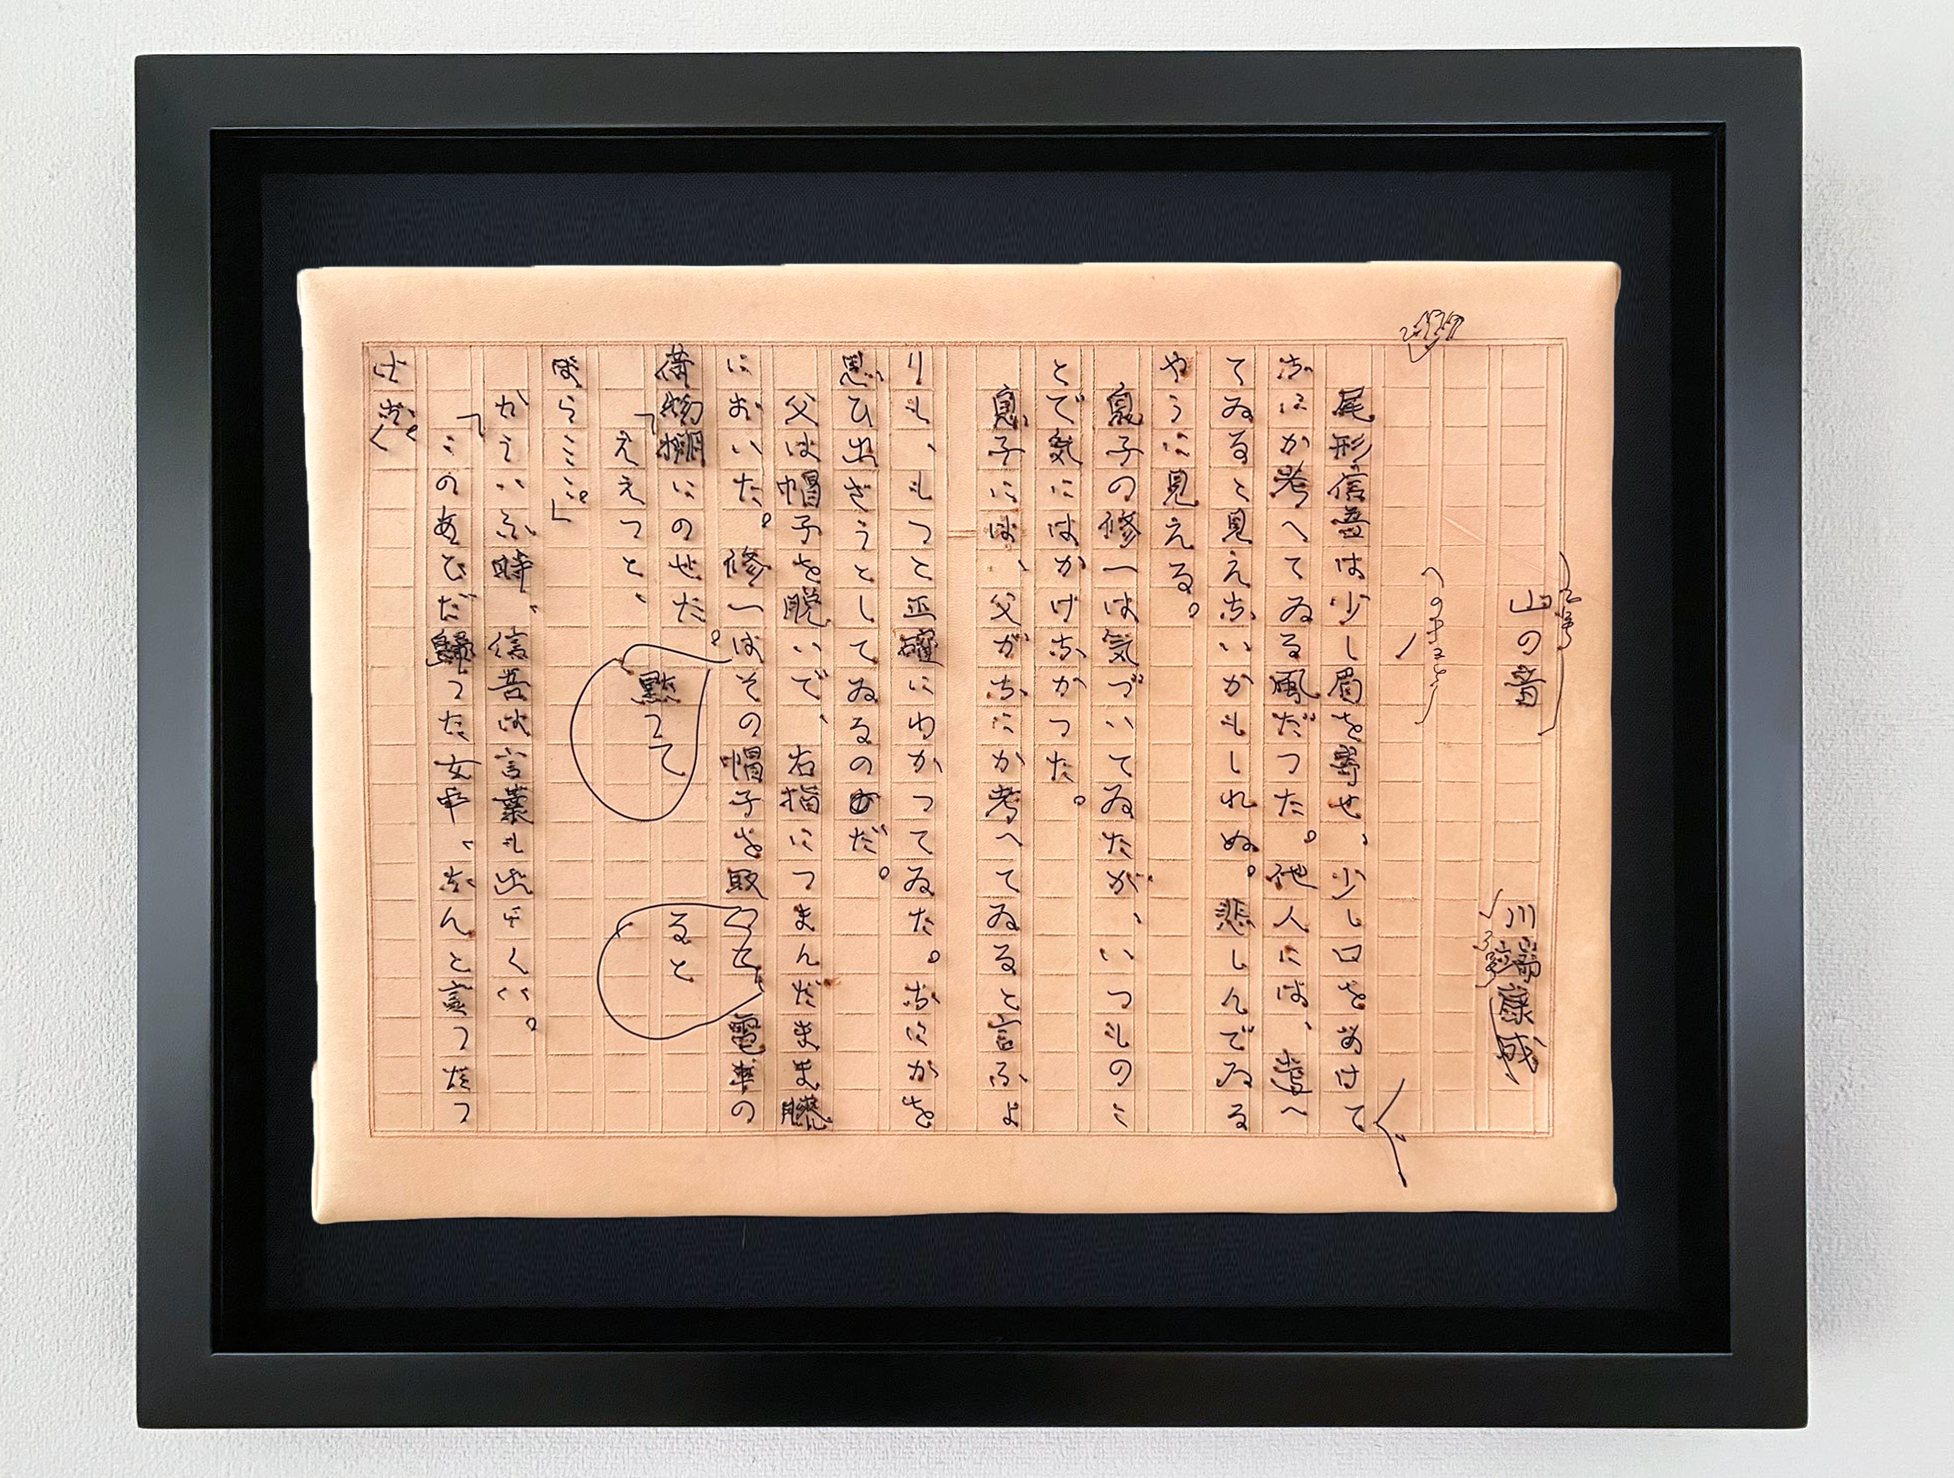 山の音 川端康成
尾形信吾は少し眉を寄せ、少し口をあけて
なにか考へてゐる風だつた。他人には、考へ
てゐると見えないかもしれぬ。悲しんでゐる
やうに見える。
息子の修一は気づいてゐたが、いつものこ
とで気にはかけなかつた。
息子には、父がなにか考へてゐると言ふよ
りも、もつと正確にわかつてゐた。なにかを
思ひ出さうとしてゐるのだ。
父は帽子を脱いで、右指につまんだまま膝
においた。修一は黙つてその帽子を取ると、電車の
荷物棚にのせた。
「ええつと、
ほらここ。」
かういふ時、信吾は言葉も出にくい。
「このあひだ歸つた女中、なんと言つたつ
け